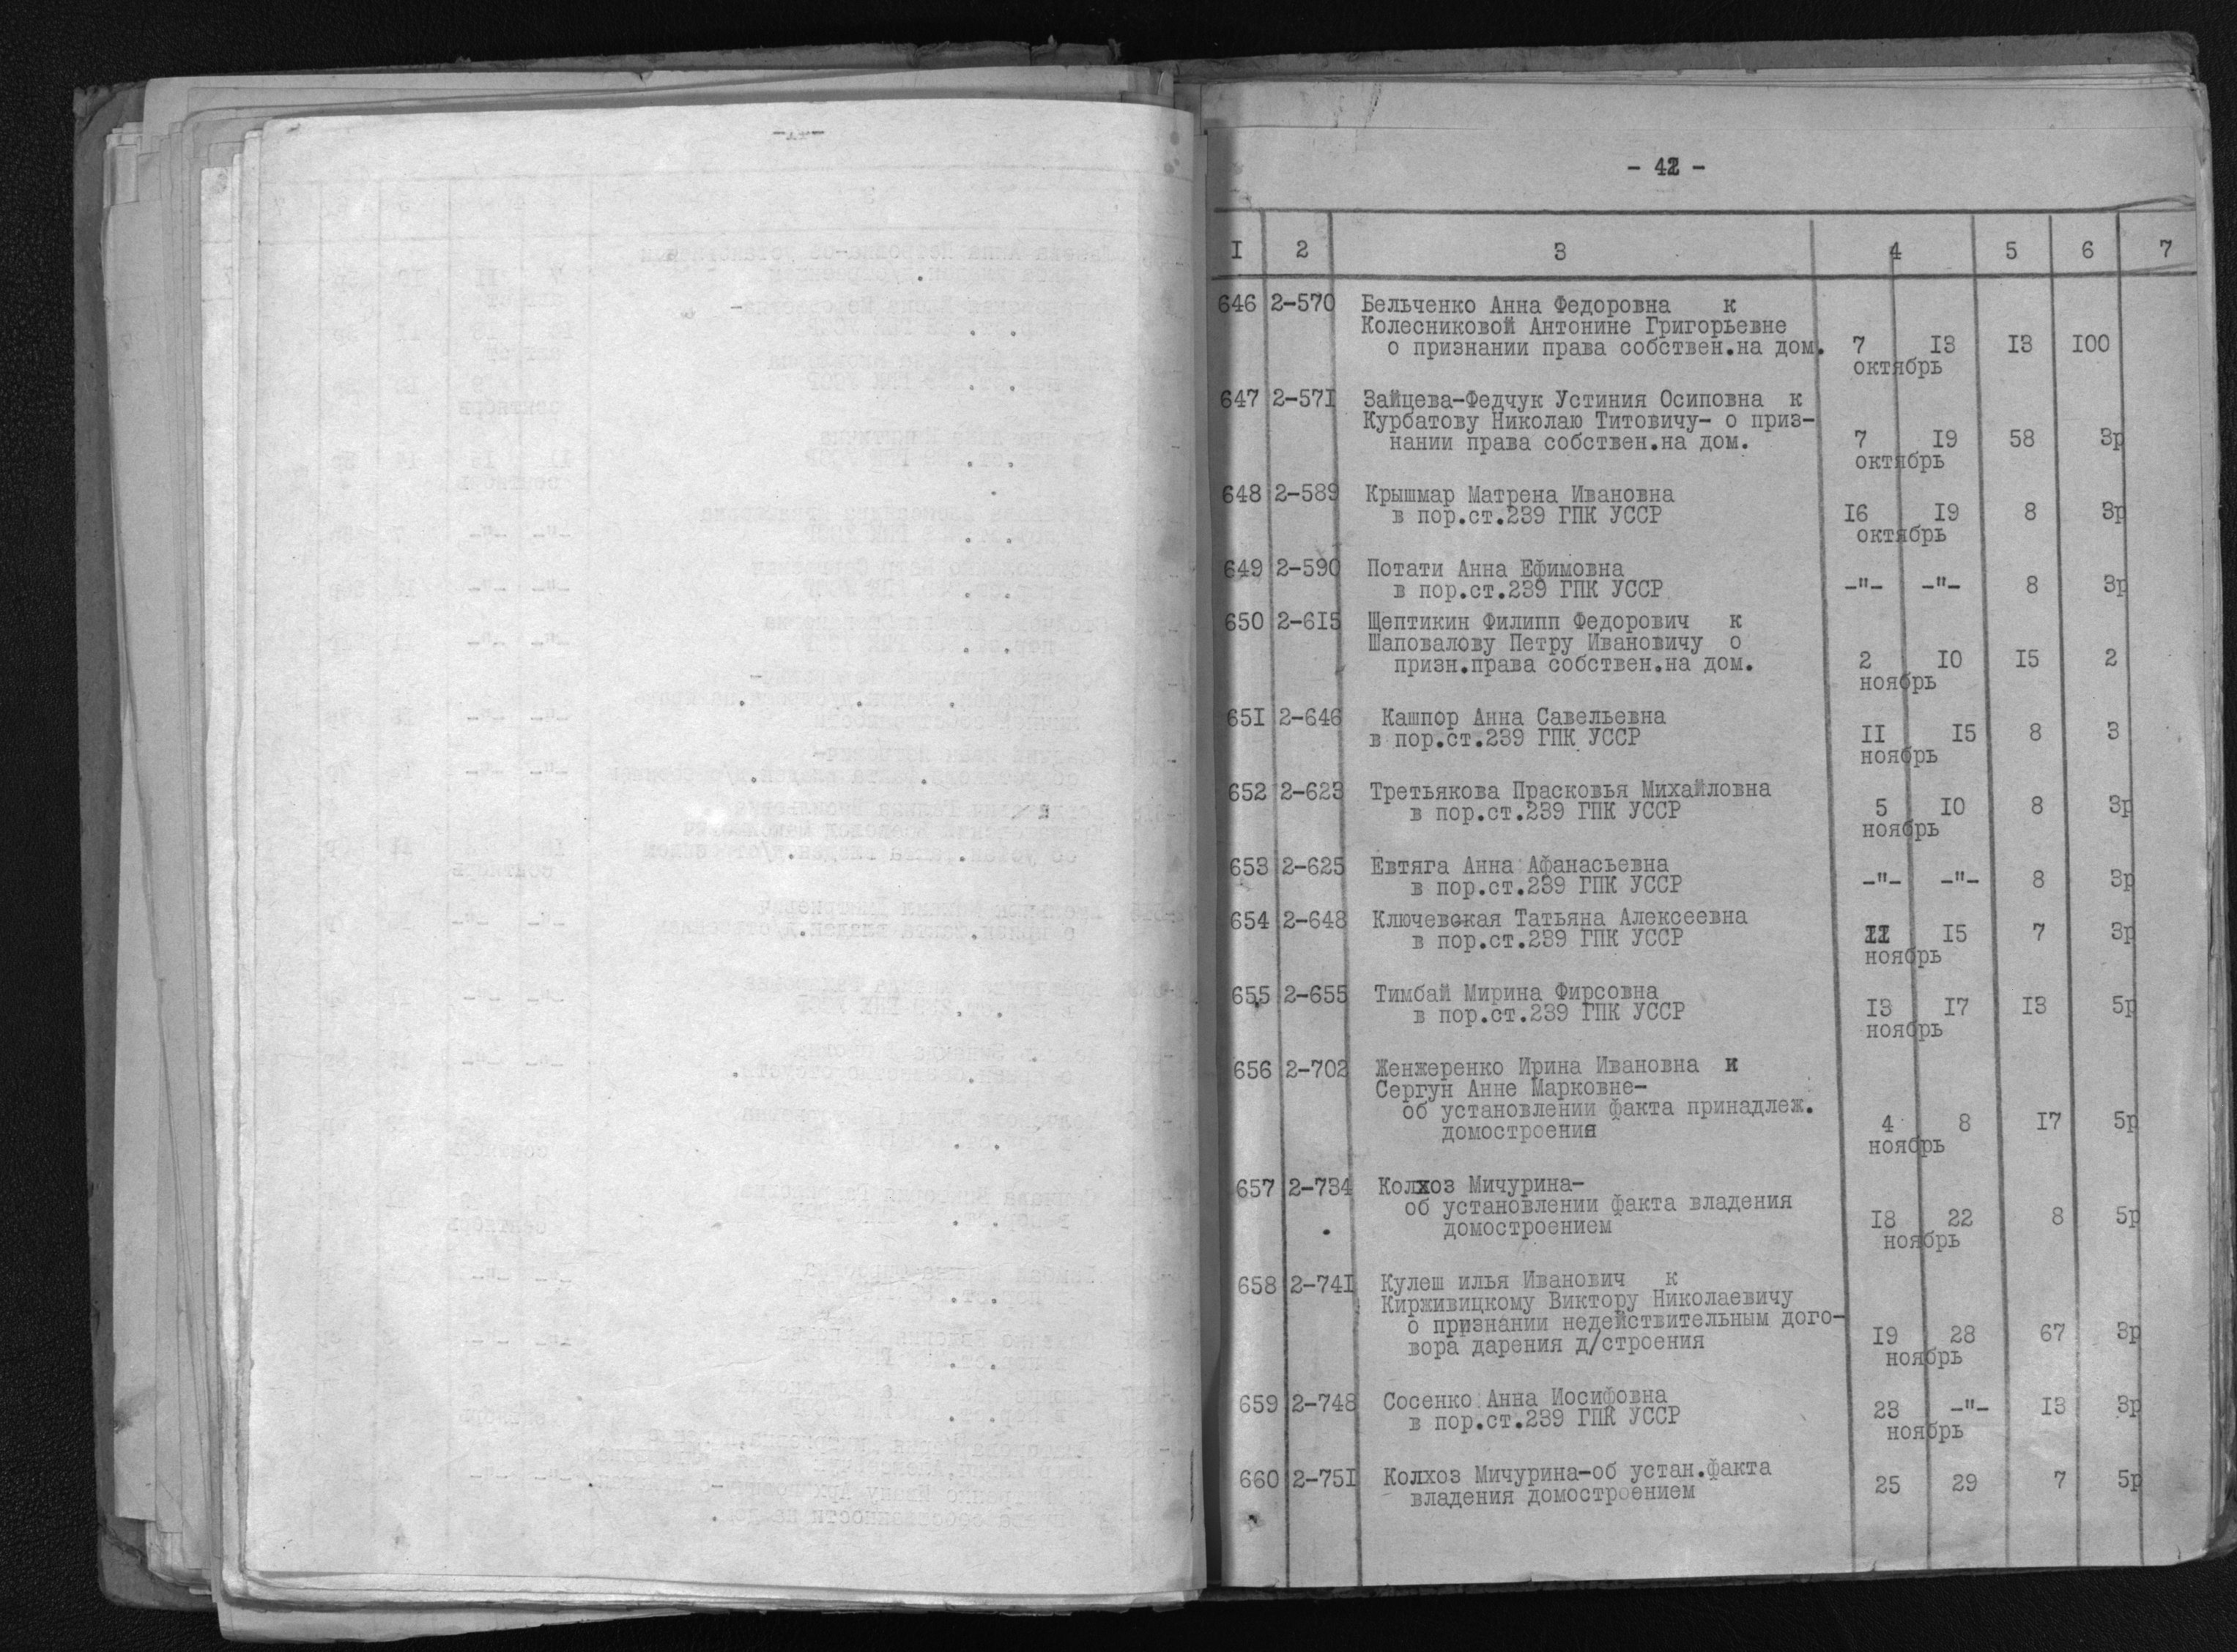 - 42 -
I 2 3 4 5 6 7
646 2-570 Бельченко Анна Федоровна к
Колесниковой Антонине Григорьевне
о признании права собствен.на дом. 7 I3 I3 I00
октябрь
647 2-57I Зайцева-Федчук Устиния Осиповна к
Курбатову Николаю Титовичу- о приз-
нании права собствен.на дом. 7 I9 58 3р
октябрь
648 2-589 Крышмар Матрена Ивановна
в пор.ст.239 ГПК УССР I6 I9 8 3р
октябрь
649 2-590 Потати Анна Ефимовна
в пор.ст.239 ГПК УССР -"- -"- 8 3р
650 2-6I5 Щептикин Филипп Федорович к
Шаповалову Петру Ивановичу о
призн.права собствен.на дом. 2 I0 I5 2
ноябрь
65I 2-646 Кашпор Анна Савельевна
в пор.ст.239 ГПК УССР II I5 8 3
ноябрь
652 2-623 Третьякова Прасковья Михайловна
в пор.ст.239 ГПК УССР 5 I0 8 3р
ноябрь
653 2-625 Евтяга Анна Афанасьевна
в пор.ст.239 ГПК УССР -"- -"- 8 3р
654 2-648 Ключевская Татьяна Алексеевна
в пор.ст.239 ГПК УССР II I5 7 3р
ноябрь
655 2-655 Тимбай Мирина Фирсовна
в пор.ст.239 ГПК УССР I3 I7 I3 5р
ноябрь
656 2-702 Женжеренко Ирина Ивановна к
Сергун Анне Марковне-
об установлении факта принадлеж.
домостроения 4 8 I7 5р
ноябрь
657 2-734 Колхоз Мичурина-
об установлении факта владения
домостроением I8 22 8 5р
ноябрь
658 2-74I Кулеш илья Иванович к
Кирживицкому Виктору Николаевичу
о признании недействительным дого-
вора дарения д/строения I9 28 67 3р
ноябрь
659 2-748 Сосенко Анна Иосифовна
в пор.ст.239 ГПК УССР 23 -"- I3 3р
ноябрь
660 2-75I Колхоз Мичурина-об устан.факта
владения домостроением 25 29 7 5р